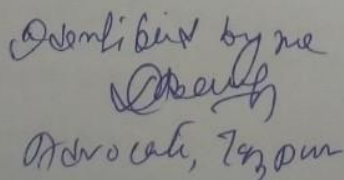 Identified by me
Advocate, Tezpur